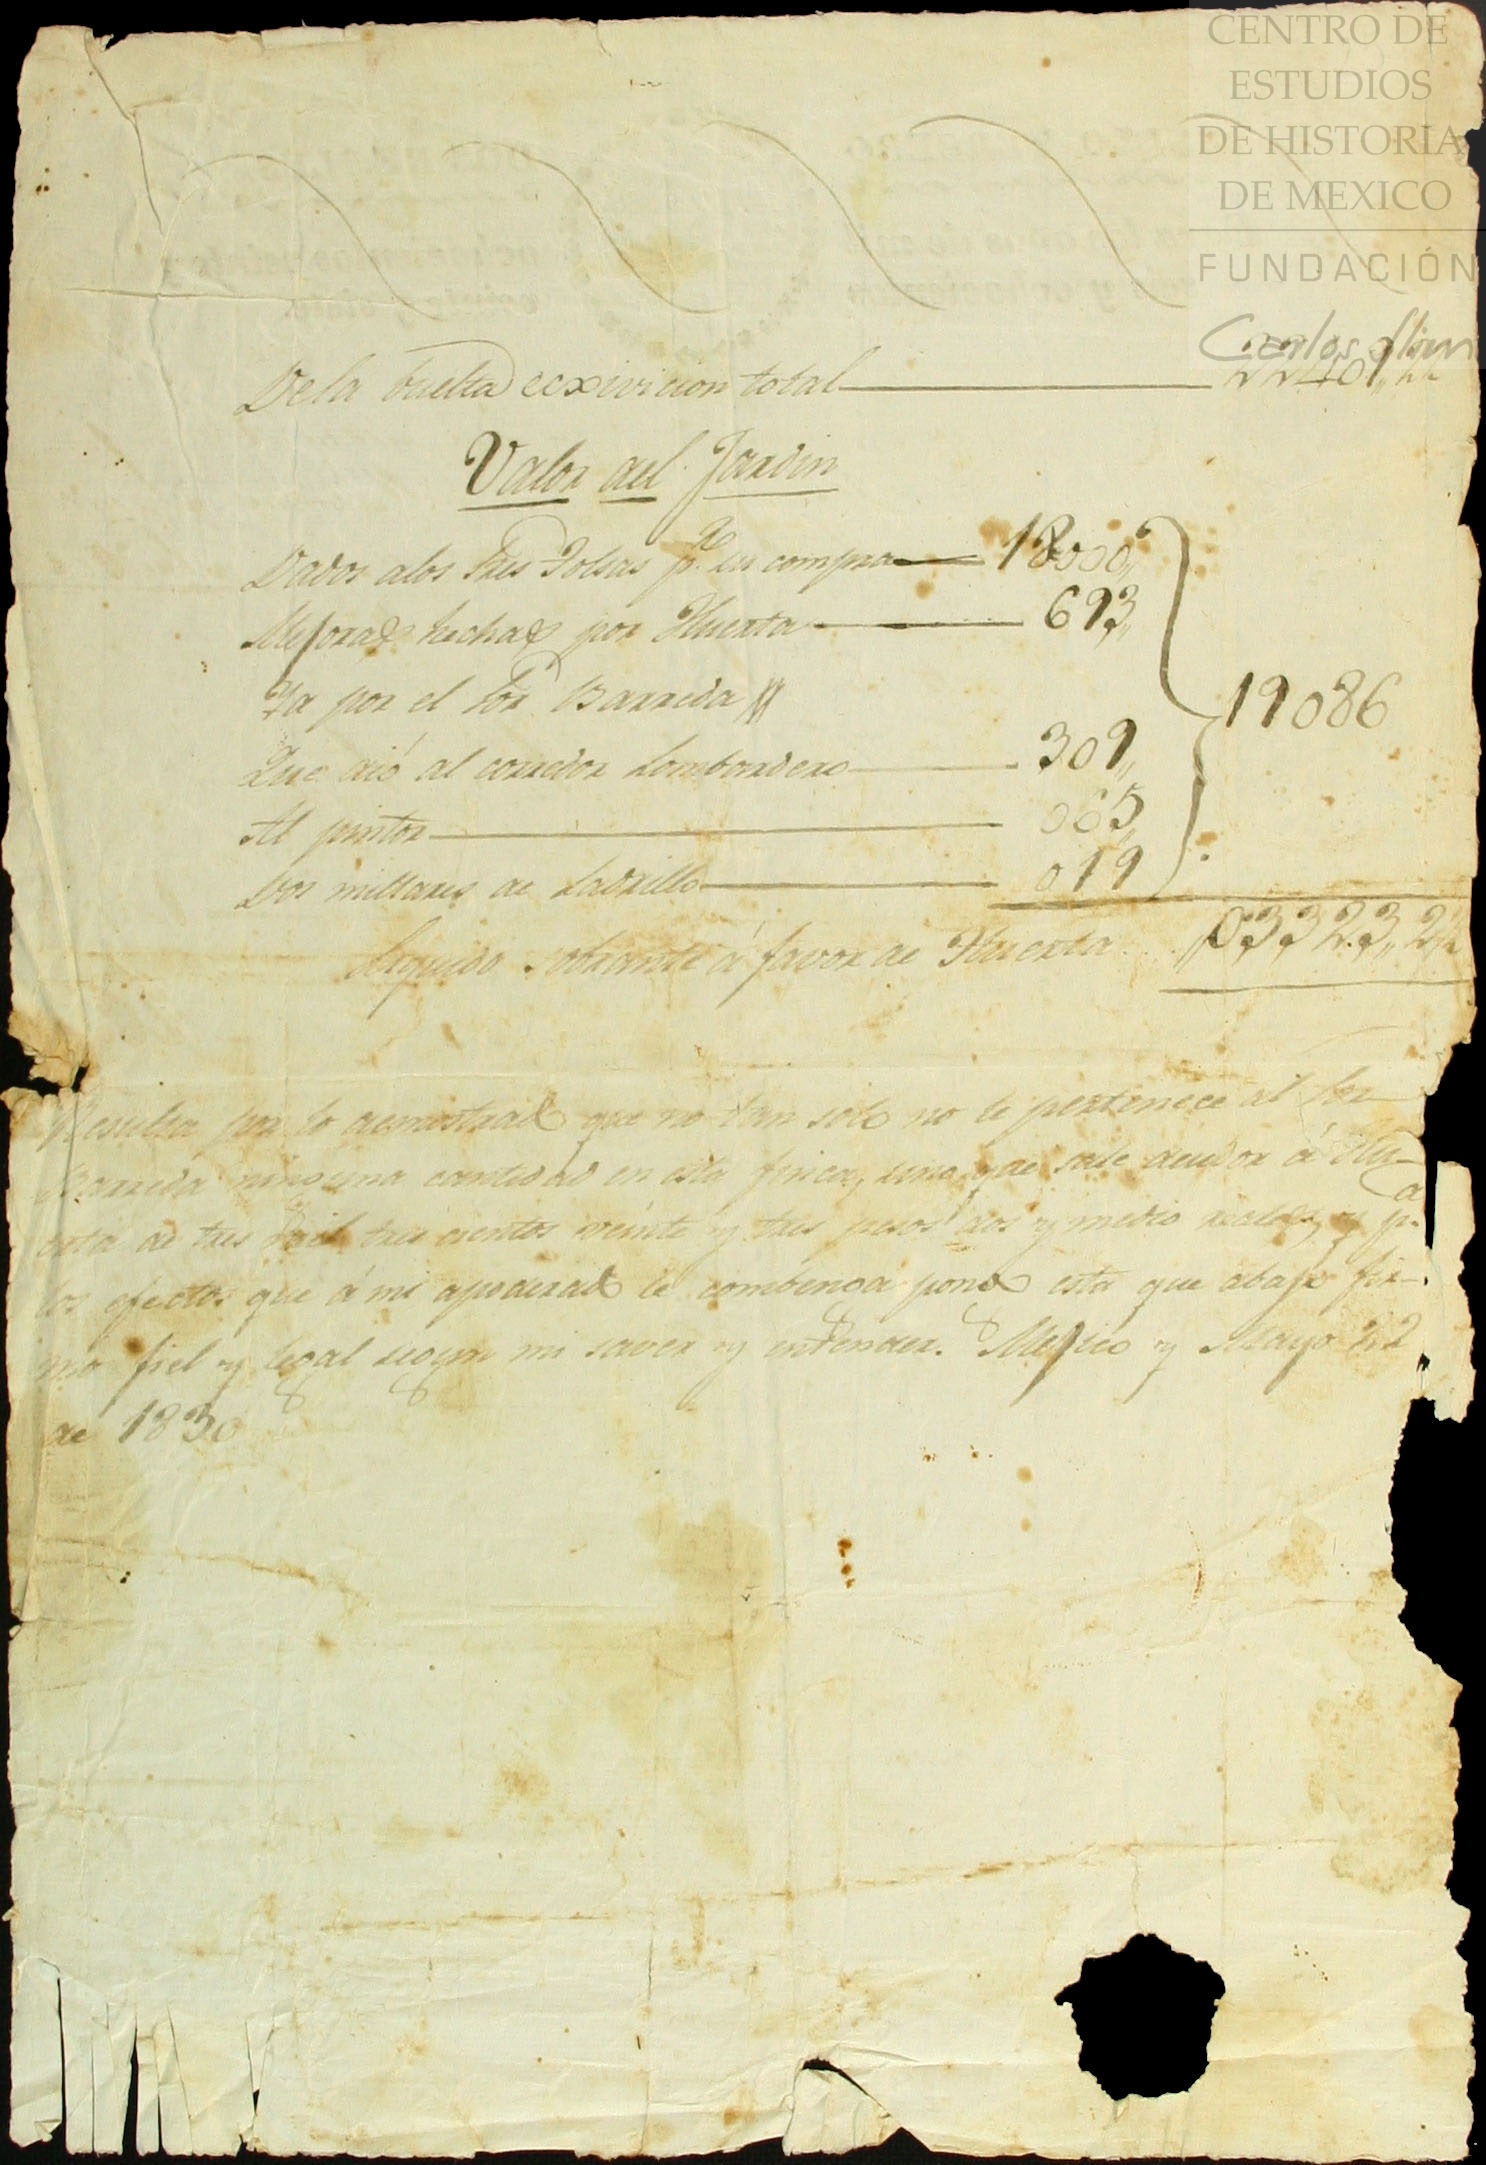 CENTRO DE
ESTUDIOS
DE HISTORIA
DE MEXICO
FUNDACIÓN
Carlos Slim
De la buelta ecxivicion total 22401
Valor del Jardin
Dados alos tres Tolsas pa. su compra 18000,,
Mejoras hechas por Huerta 693,,
Ya por el Sor. Barreda
Que dió al corredor Lombardero 309,,
Al pintor 065,,
Dos millares de Ladrillo 019
19086
Liquido sobrante á favor de Huerta 03323,,2½
Resulta por lo demostrado que no tan solo no le pertenece al Sor
Barreda ninguna cantidad en esta finca, sino que sale deudor á Hu-
erta de tres mil tres cientos veinte y tres pesos dos y medio reales, y pa.
los efectos que á mi apoderado le combenga pongo esta que abajo fir-
mo fiel y legal segun mi saver y entender. Mejico y Mayo 22
de 1830